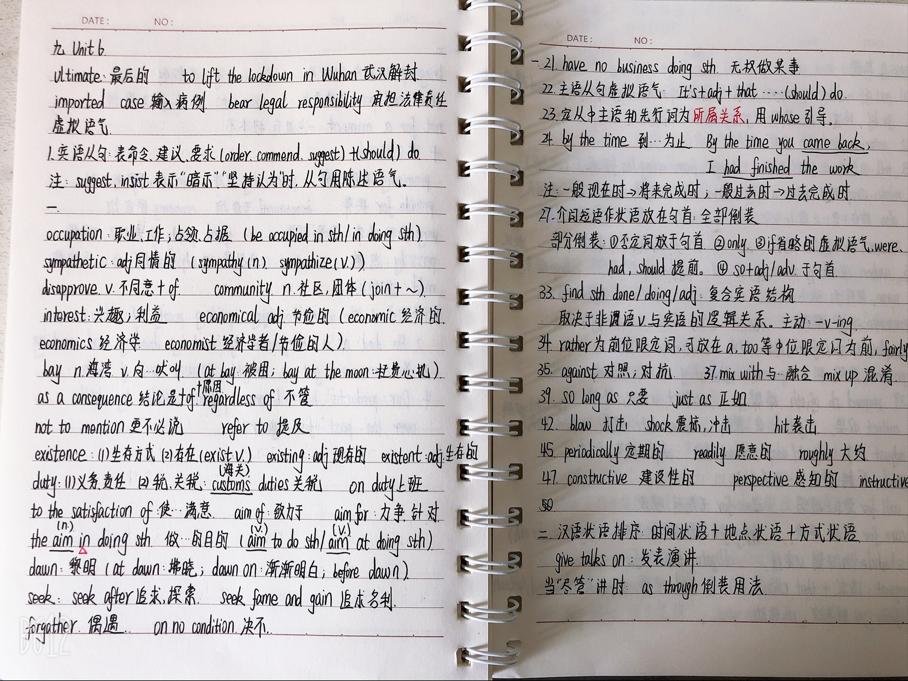 DATE: NO:
九 Unit 6
ultimate: 最后的 to lift the lockdown in Wuhan 武汉解封
imported case 输入病例 bear legal responsibility 承担法律责任
虚拟语气
1.宾语从句:表命令、建议、要求(order. commend. suggest)+(should) do
注: suggest, insist 表示"暗示""坚持认为"时,从句用陈述语气。
一.
occupation:职业,工作;占领,占据 (be occupied in sth/in doing sth)
sympathetic:adj同情的 (sympathy(n.) sympathize(v.))
disapprove. v.不同意+of community n.社区,团体(join+~)
interest:兴趣;利益 economical adj 节俭的 (economic 经济的
economics 经济学 economist 经济学者/节俭的人)
bay n.海湾 v.向…吠叫 (at bay 被困; bay at the moon:枉费心机)
as a consequence 结论是+of原因 regardless of 不管
not to mention 更不必说 refer to 提及
existence:(1)生存方式 (2)存在(exist v.) existing:adj现存的 existent:adj生存的
duty:(1)义务,责任 (2)税,关税: customs(海关) duties 关税 on duty 上班
to the satisfaction of 使…满意 aim of:致力于 aim for:力争,针对
the aim(n) in doing sth 做…的目的 (aim(v) to do sth/aim(v) at doing sth)
dawn:黎明 (at dawn:拂晓; dawn on:渐渐明白; before dawn)
seek: seek after 追求,探索. seek fame and gain 追求名利.
forgather. 偶遇.. on no condition 决不..
DATE: NO:
21. have no business doing sth 无权做某事
22.主语从句虚拟语气: It's+adj+that ……(should) do
23.定从中主语和先行词为所属关系,用whose引导。
24. by the time 到…为止 By the time you came back,
I had finished the work
注:一般现在时→将来完成时;一般过去时→过去完成时
27.介词短语作状语放在句首:全部倒装
部分倒装:①否定词放于句首 ②only ③if省略的虚拟语气,were、
had, should 提前。 ④ so+adj/adv 于句首
33. find sth done/doing/adj:复合宾语结构
取决于非谓语v与宾语的逻辑关系。主动:-v-ing
34. rather为前位限定词,可放在a,too等中位限定词为前, fairly
35. against 对照;对抗 37.mix with 与…融合 mix up 混淆
39. so long as 只要 just as 正如
42. blow 打击 shock 震惊,冲击 hit 袭击
45. periodically 定期的 readily 愿意的 roughly 大约
47. constructive 建设性的 perspective 感知的 instructive
50
二.汉语状语排序 时间状语+地点状语+方式状语
give talks on:发表演讲.
当"尽管"讲时: as through 倒装用法